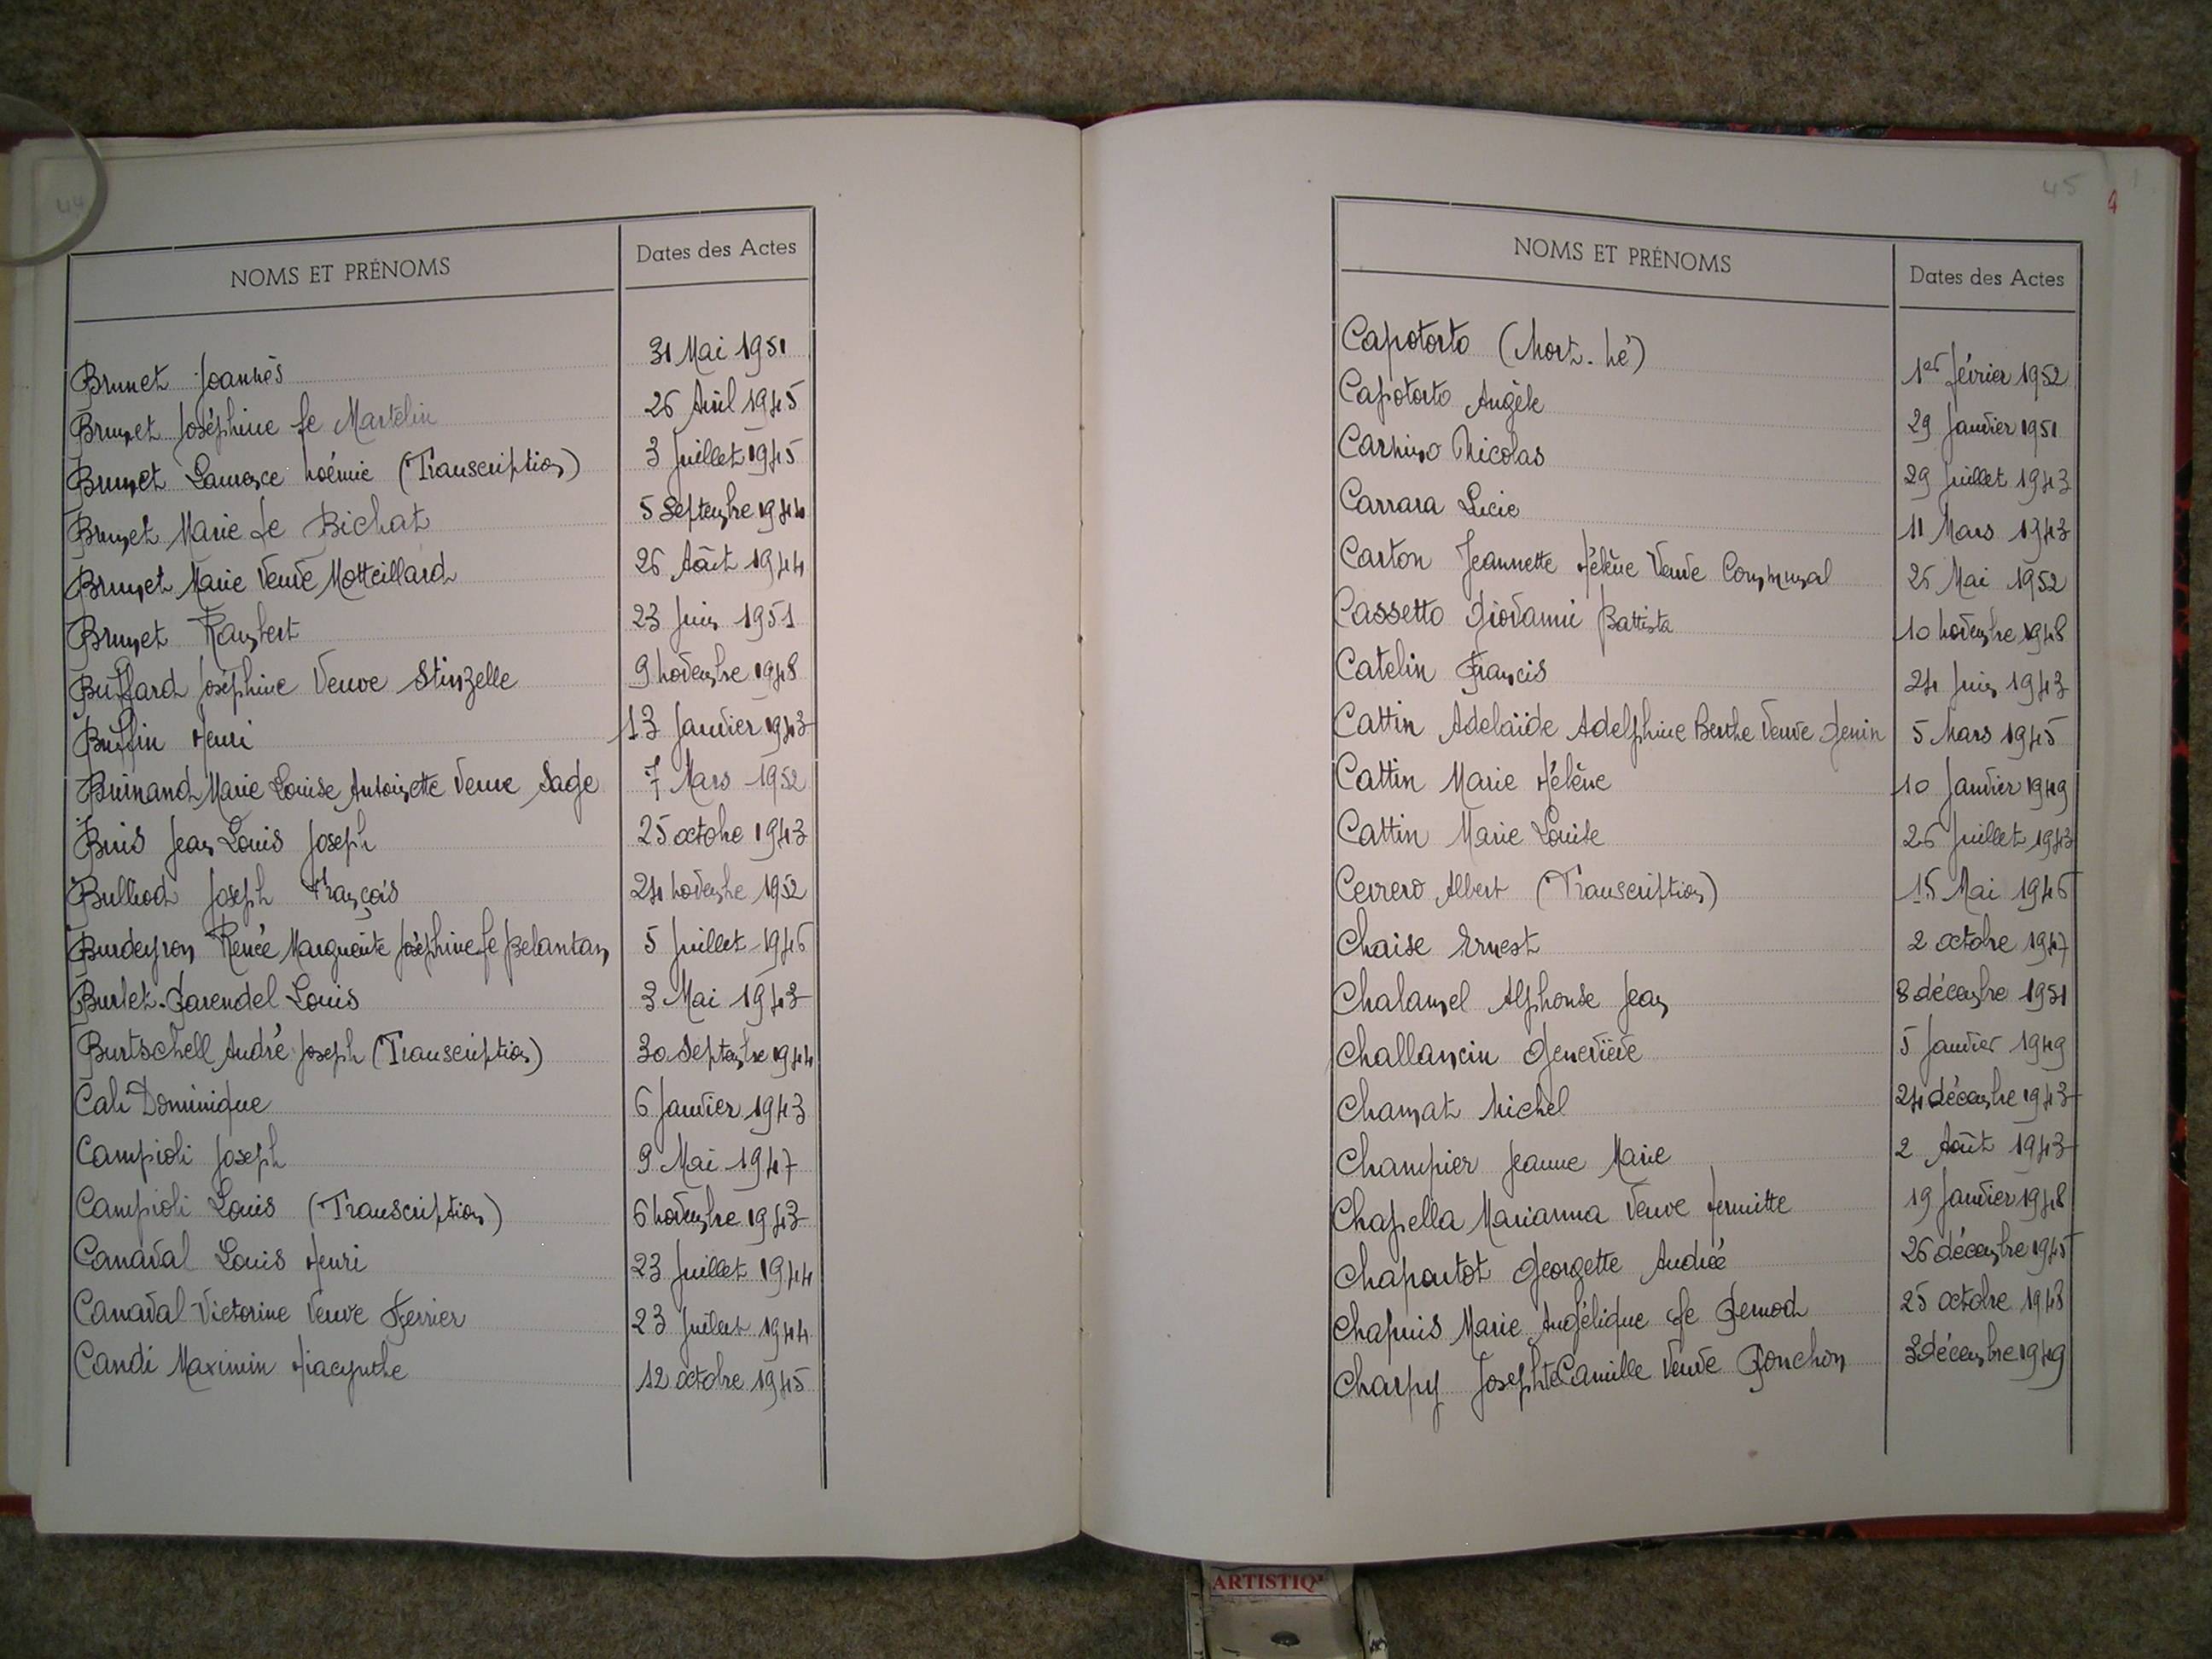 44
NOMS ET PRÉNOMS Dates des Actes
Brunet Joannès 31 Mai 1951
Brunet Joséphine fe Martelin 26 Avril 1945
Brunet Laurence Noémie (Transcription) 3 Juillet 1945
Brunet Marie fe Bichat 5 Septembre 1944
Brunet Marie Veuve Motteillard 26 Août 1944
Brunet Rambert 23 Juin 1951
Buffard Joséphine Veuve Stinzelle 9 Novembre 1948
Buffin Henri 13 Janvier 1943
Buinand Marie Louise Antoinette Veuve Sage 7 Mars 1952
Buis Jean Louis Joseph 25 octobre 1943
Bulliod Joseph François 24 Novembre 1952
Burdeyron Renée Marguerite Joséphine fe Belantan 5 Juillet 1946
Burlet-Farendel Louis 3 Mai 1943
Burtschell André Joseph (Transcription) 30 Septembre 1944
Cali Dominique 6 Janvier 1943
Campioli Joseph 9 Mai 1947
Campioli Louis (Transcription) 6 Novembre 1943
Canaval Louis Henri 23 Juillet 1944
Canaval Victorine Veuve Ferrier 23 Juillet 1944
Candi Maximin Hiacynthe 12 octobre 1945
45
NOMS ET PRÉNOMS Dates des Actes
Capotorto (Mort-Né) 1er Février 1952
Capotorto Angèle 29 Janvier 1951
Carnino Nicolas 29 Juillet 1943
Carrara Lucie 11 Mars 1943
Carton Jeannette Hélène Veuve Communal 26 Mai 1952
Cassetto Giovanni Battista 10 Novembre 1948
Catelin Francis 24 Juin 1943
Cattin Adelaïde Adelphine Berthe Veuve Genin 5 Mars 1945
Cattin Marie Hélène 10 Janvier 1949
Cattin Marie Louise 26 Juillet 1943
Cevrero Albert (Transcription) 15 Mai 1946
Chaise Ernest 2 octobre 1947
Chalamel Alphonse Jean 8 décembre 1951
Challancin Geneviève 5 Janvier 1949
Chamat Michel 24 décembre 1943
Champier Jeanne Marie 2 Août 1943
Chapella Marianna Veuve Hermitte 19 Janvier 1948
Chapoutot Georgette Andrée 26 décembre 1945
Chapuis Marie Angélique fe Gemod 25 octobre 1948
Charpy Josephte Camille Veuve Ponchon 3 décembre 1949
ARTISTIQ